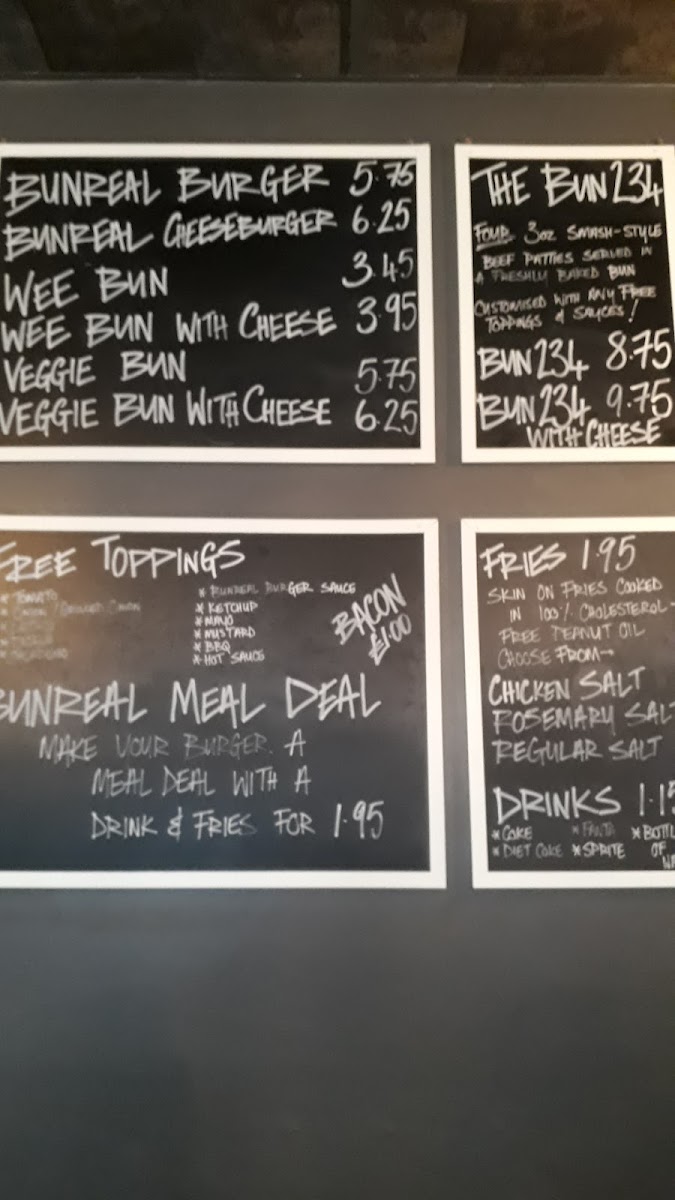 BUNREAL BURGER 5.75
BUNREAL CHEESEBURGER 6.25
WEE BUN 3.45
WEE BUN WITH CHEESE 3.95
VEGGIE BUN 5.75
VEGGIE BUN WITH CHEESE 6.25
THE BUN 234
FOUR 3oz SMASH-STYLE
BEEF PATTIES SERVED IN
A FRESHLY BAKED BUN
CUSTOMISED WITH ANY FREE
TOPPINGS & SAUCES!
BUN 234 8.75
BUN 234 9.75
WITH CHEESE
FREE TOPPINGS
* TOMATO
* BUNREAL BURGER SAUCE
* KETCHUP
* MAYO
* MUSTARD
* BBQ
* HOT SAUCE
BACON
£1.00
BUNREAL MEAL DEAL
MAKE YOUR BURGER A
MEAL DEAL WITH A
DRINK & FRIES FOR 1.95
FRIES 1.95
SKIN ON FRIES COOKED
IN 100% CHOLESTEROL-
FREE PEANUT OIL
CHOOSE FROM→
CHICKEN SALT
ROSEMARY SALT
REGULAR SALT
DRINKS 1.15
* COKE * FANTA * BOTTL
* DIET COKE * SPRITE OF